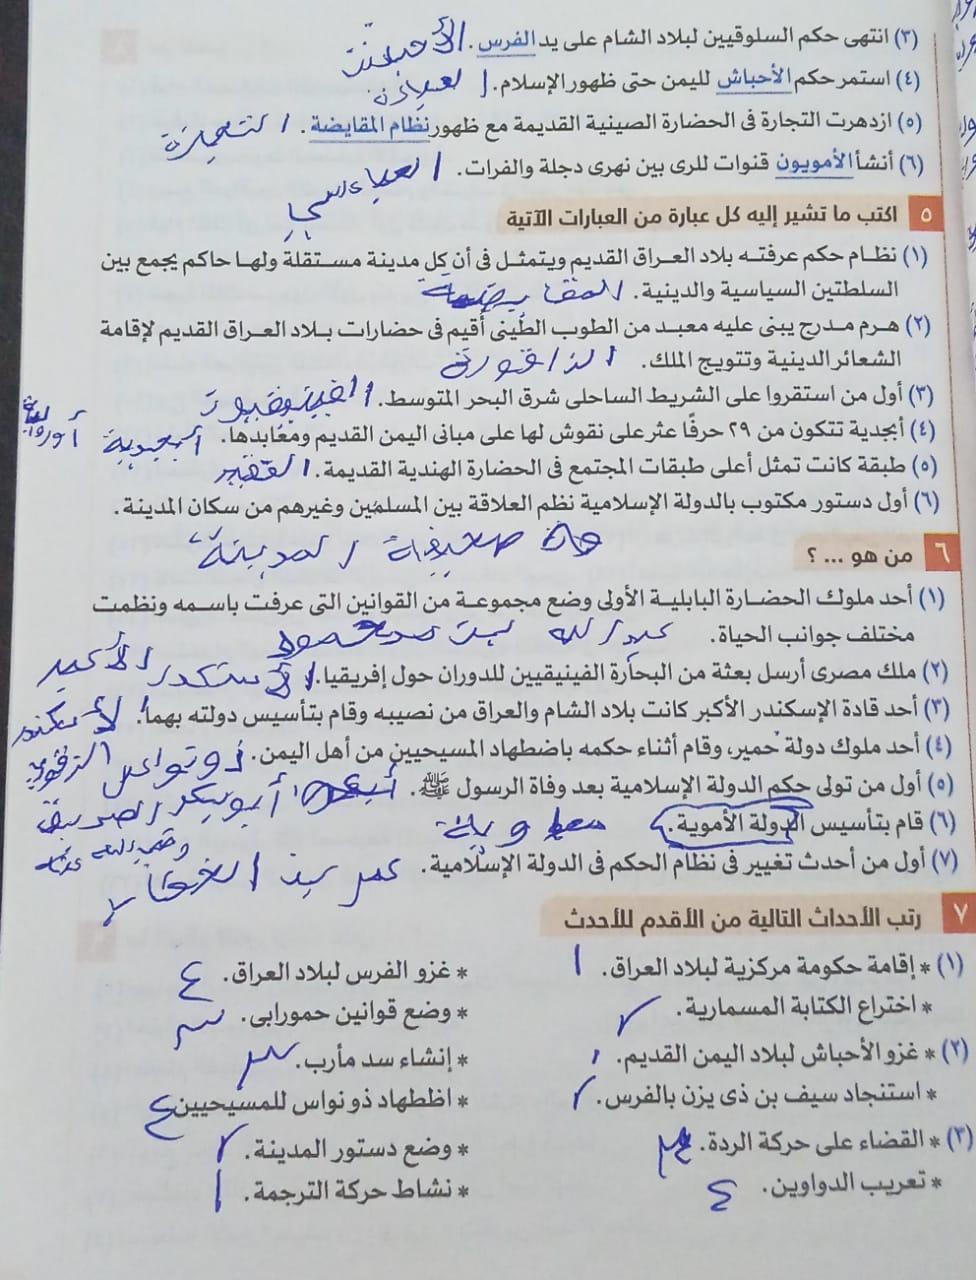 (٣) انتهى حكم السلوقيين لبلاد الشام على يد الفرس.
(٤) استمر حكم الأحباش لليمن حتى ظهور الإسلام.
(٥) ازدهرت التجارة فى الحضارة الصينية القديمة مع ظهور نظام المقايضة.
(٦) أنشأ الأمويون قنوات للرى بين نهرى دجلة والفرات.
٥ اكتب ما تشير إليه كل عبارة من العبارات الآتية
(١) نظام حكم عرفته بلاد العراق القديم ويتمثل فى أن كل مدينة مستقلة ولها حاكم يجمع بين
السلطتين السياسية والدينية. المقايضة
(٢) هرم مدرج يبنى عليه معبد من الطوب الطينى أقيم فى حضارات بلاد العراق القديم لإقامة
الشعائر الدينية وتتويج الملك.
(٣) أول من استقروا على الشريط الساحلى شرق البحر المتوسط.
(٤) أبجدية تتكون من ٢٩ حرفًا عثر على نقوش لها على مبانى اليمن القديم ومعابدها. أبجدية
(٥) طبقة كانت تمثل أعلى طبقات المجتمع فى الحضارة الهندية القديمة.
(٦) أول دستور مكتوب بالدولة الإسلامية نظم العلاقة بين المسلمين وغيرهم من سكان المدينة.
صحيفة المدينة
٦ من هو ... ؟
(١) أحد ملوك الحضارة البابلية الأولى وضع مجموعة من القوانين التى عرفت باسمه ونظمت
مختلف جوانب الحياة. عبدالله بن
(٢) ملك مصرى أرسل بعثة من البحارة الفينيقيين للدوران حول إفريقيا. الأكبر
(٣) أحد قادة الإسكندر الأكبر كانت بلاد الشام والعراق من نصيبه وقام بتأسيس دولته بهما.
(٤) أحد ملوك دولة حمير، وقام أثناء حكمه باضطهاد المسيحيين من أهل اليمن.
(٥) أول من تولى حكم الدولة الإسلامية بعد وفاة الرسول ﷺ. أبو بكر الصديق
(٦) قام بتأسيس الدولة الأموية. معاوية
(٧) أول من أحدث تغيير فى نظام الحكم فى الدولة الإسلامية. عمر بن الخطاب
٧ رتب الأحداث التالية من الأقدم للأحدث
(١) * إقامة حكومة مركزية لبلاد العراق. ١ * غزو الفرس لبلاد العراق. ٤
* اختراع الكتابة المسمارية. ٢ * وضع قوانين حمورابى. ٣
(٢) * غزو الأحباش لبلاد اليمن القديم. ١ * إنشاء سد مأرب. ٣
* استنجاد سيف بن ذى يزن بالفرس. ٢ * اظطهاد ذو نواس للمسيحيين ٤
(٣) * القضاء على حركة الردة. ٣ * وضع دستور المدينة. ٢
* تعريب الدواوين. ٤ * نشاط حركة الترجمة. ١